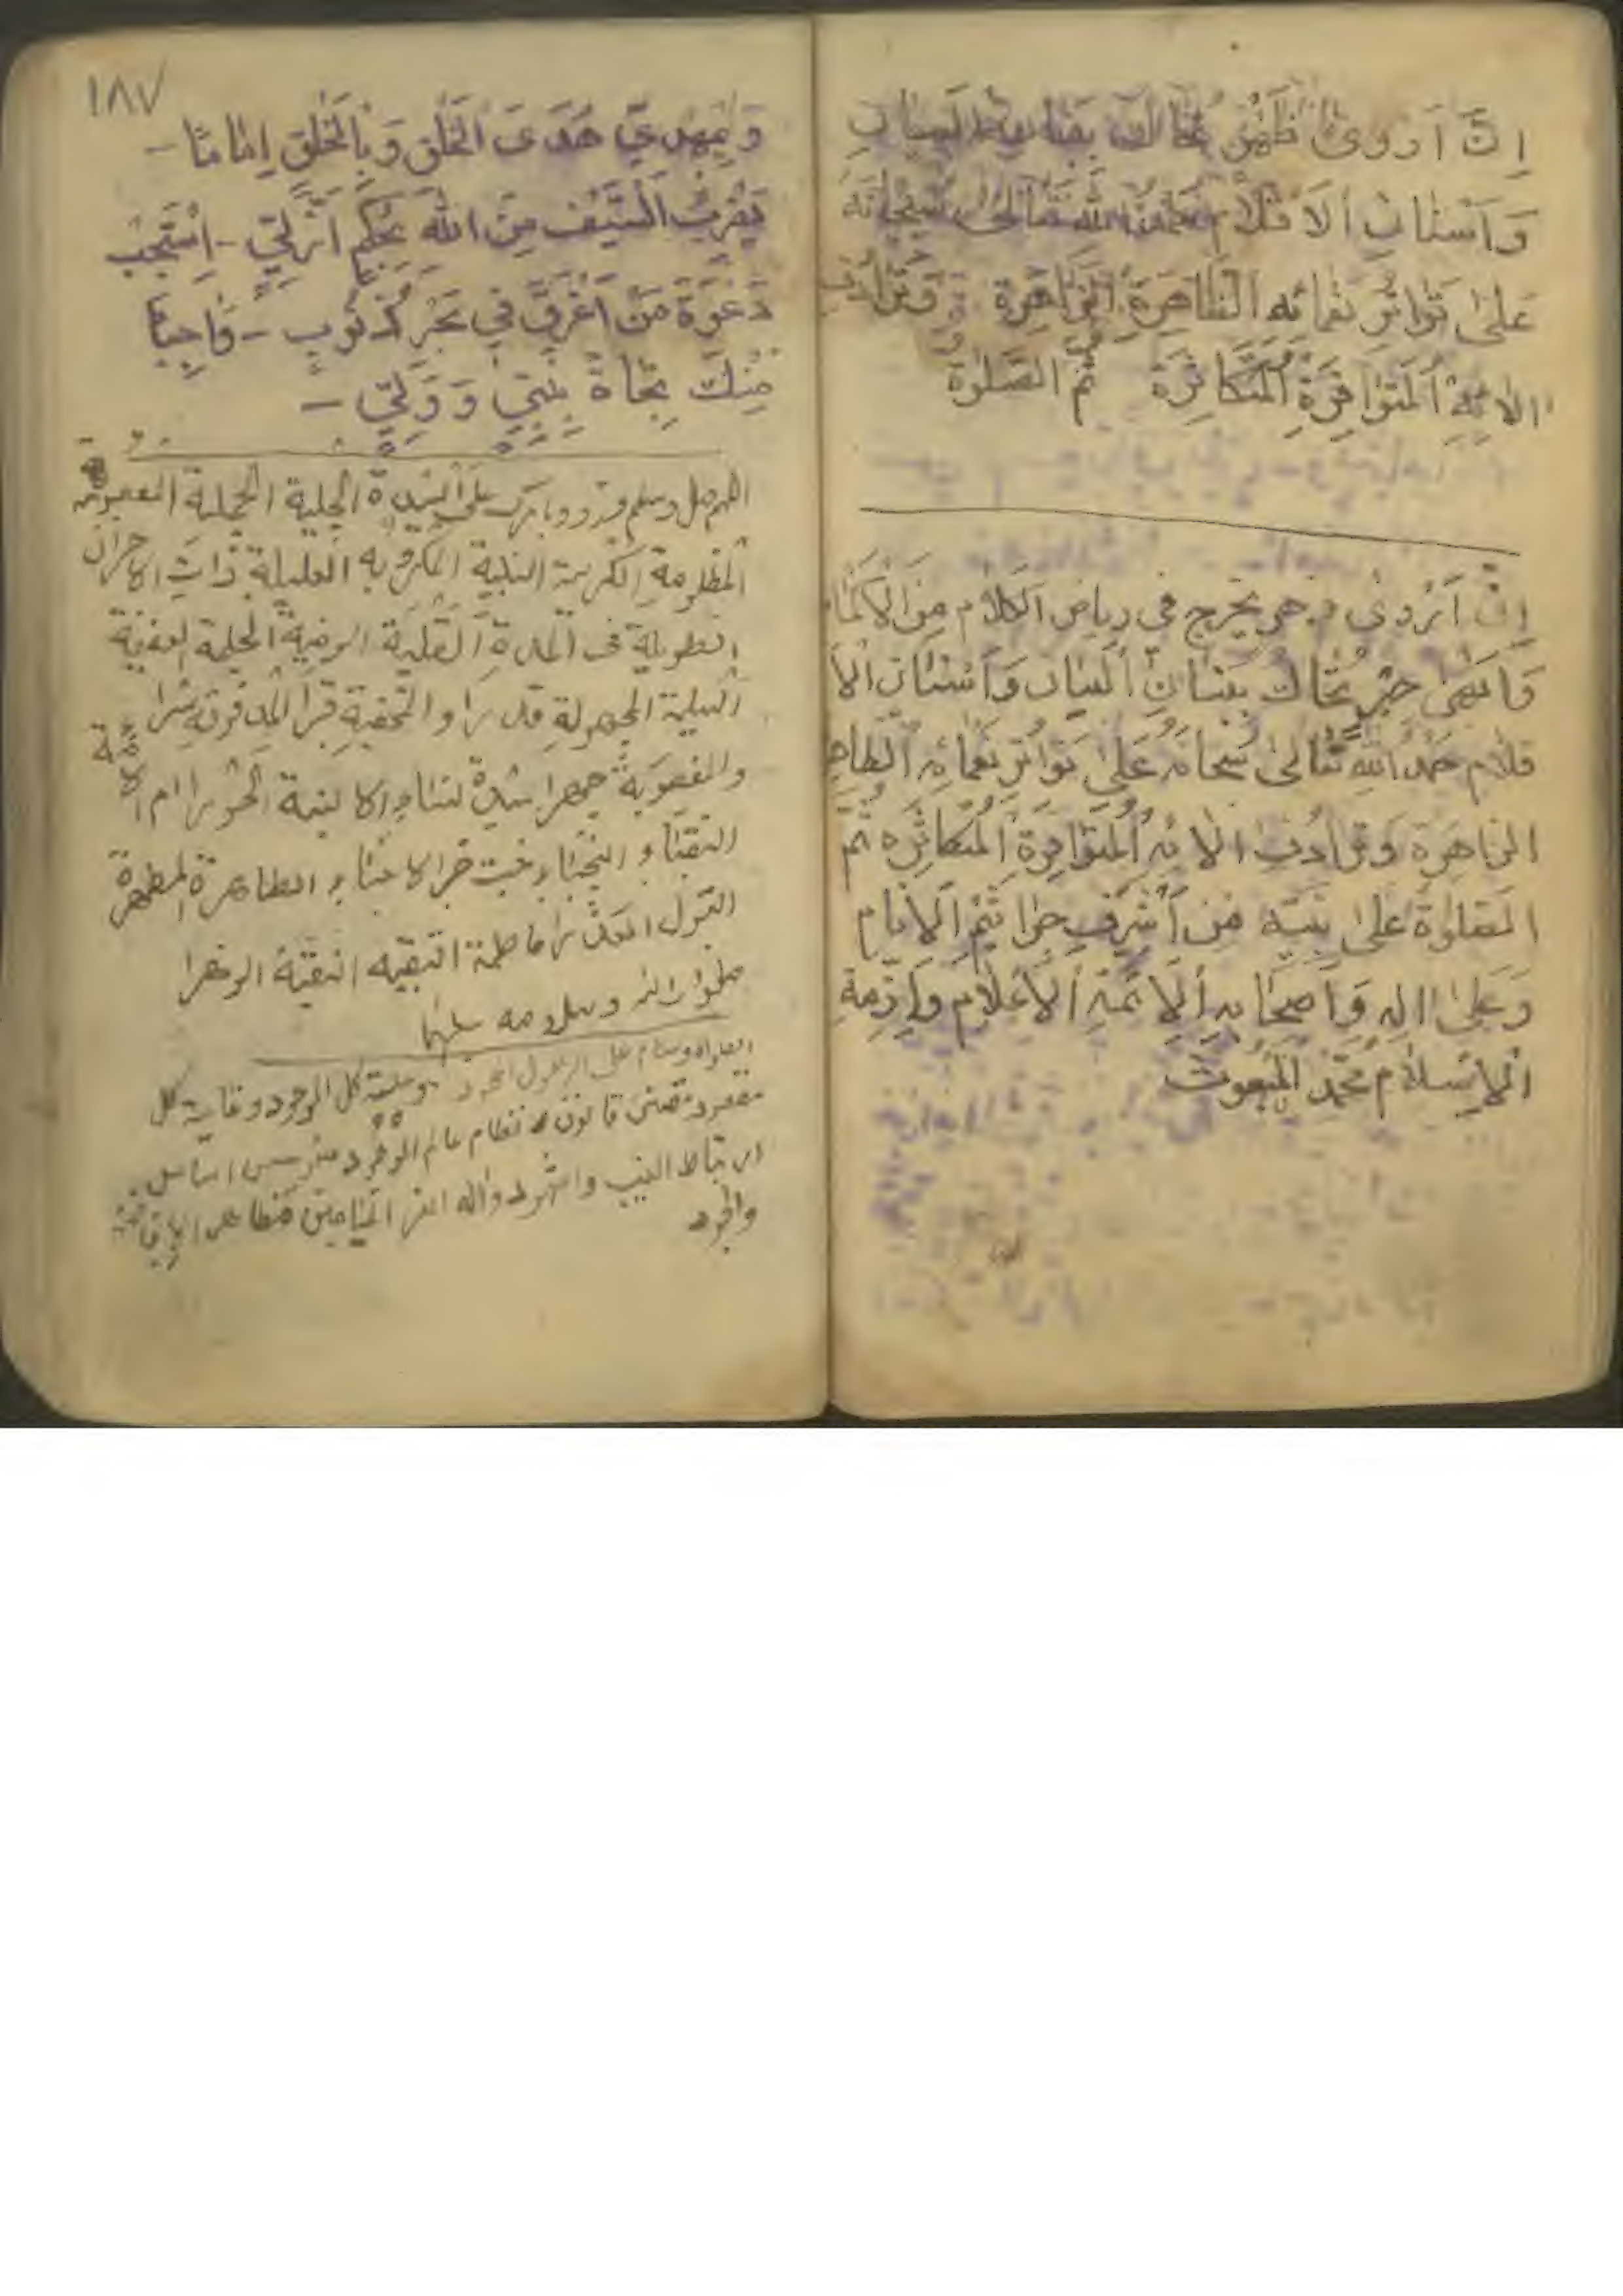 اِنَّ اَرْوىٰ يُحٰاكُ
وَاَسْنٰانِ الْاَقْلٰامِ تَعٰالىٰ سُبْحٰانَهُ
عَلىٰ تَوٰاتُرِ نَعْمٰائِهِ الظّٰاهِرَةِ الزّٰاهِرَةِ وَتَرٰادُفِ
اٰلاٰئِهِ الْمُتَوٰافِرَةِ الْمُتَكٰاثِرَةِ ثُمَّ الصَّلوٰة
اِنَّ اَرْوىٰ يخرج في رياض الكلام مِنَ الْاَكْمٰا
وَاَبْهىٰ حِبَرٍ يُحٰاكُ بِبَنٰانِ الْبَيٰانِ وَاَسْنٰانِ الْاَ
قلام حَمْدُ اللهِ تَعٰالىٰ سُبْحٰانَهُ عَلىٰ تَوٰاتُرِ نَعْمٰائِهِ الظّٰاهِ
الزاهِرَةِ وَتَرٰادُفِ اٰلاٰئِهِ الْمُتَوٰافِرَةِ الْمُتَكٰاثِرَه ثُمَّ
الصَّلوٰةُ عَلىٰ نَبِيِّهِ مِنْ اَشْرَفِ جَرٰاثِيْمِ الْاَنٰام
وَعَلىٰ اٰلِهِ وَاَصحٰابِهِ اَلْاَئِمَّةِ الْاَعْلٰامِ وَاَزِمَّةِ
الْاِسْلٰام مُحَمَّدٍ الْمَبْعُوثِ
١٨٧
وَبِمَهْدِيٍّ هَدَى الْخَلْقِ وَبِالْخَلْقِ اِمٰامًا -
بِضَرْبِ السَّيْفِ مِنَ اللهِ بِحُكْمٍ اَزَلِيٍّ - اِسْتَجِبْ
دَعْوَةَ مَنْ اَغْرَقَ في بَحْرِ ذُنُوبٍ - وٰاجِيًا
مِنْكَ نَجٰاةً بِنَبِيٍّ وَوَلِيٍّ -
اللهم صل وسلم وزد وبارك على السيدة الجليلة الجميلة المعصومة
المظلومةِ الكريمة النبيلة المكروبة العليلة ذاتِ الاحزان
الطويلة في المدةِ القليلة الرضية الحليمة العفيفة
السليمة المجهولةِ قدرا والمخفيةِ قبراً المدفونةِ سرا
والمغصوبةِ جهرا سيدةِ النساءِ الانسية الحوراء ام الائمة
النقباءِ النجباء بنت خير الانبياء الطاهرة المطهرة
البتول العذراء فاطمة التقيه النقية الزهرا
صلوات الله وسلامه عليها
الصلاة وسلام على الرسول المحمود وعلة كل الموجود وغاية كل
مقصود مقنن قانون نظام عالم الوجود مؤسس اساس
ارتباط الغيب والشهود واله الغر الميامين
والجود